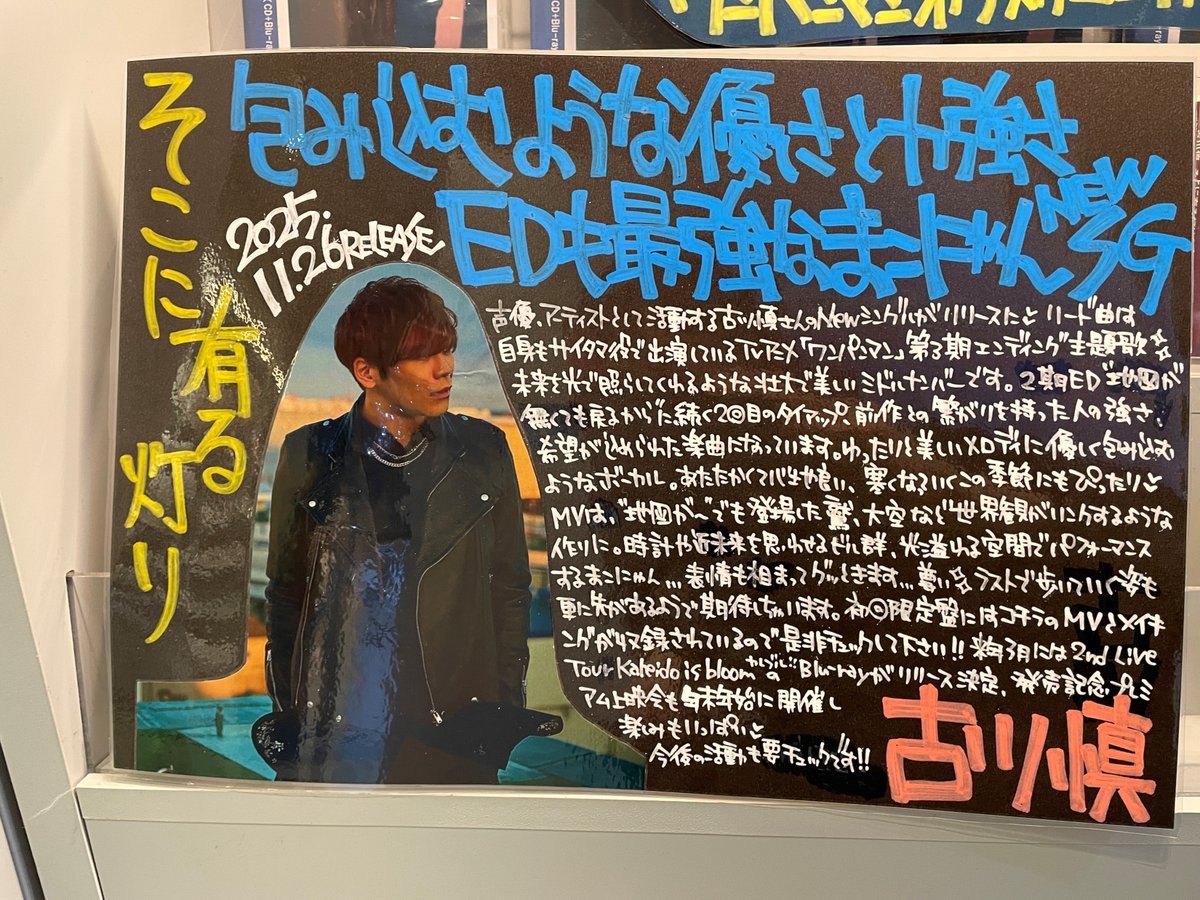 そこに有る灯り
包みこむような優しさと力強さ
EDも最強なまこにゃんNEW SG
2025.
11.26 RELEASE
声優、アーティストとして活動する古川慎さんのNewシングルがリリースに♪ リード曲は
自身もサイタマ役で出演しているTVアニメ「ワンパンマン」第3期エンディング主題歌☆
未来を光で照らしてくれるような壮大で美しいミドルナンバーです。2期ED"地図が
無くても戻るから"に続く2回目のタイアップ、前作との繋がりを持った人の強さ、
希望がこめられた楽曲になっています。ゆったりと美しいメロディに優しく包みこむ
ようなボーカル。あたたかくて心地良い、寒くなるいくこの季節にもぴったり♪
MVは、"地図が〜"でも登場した鷲、大空など世界観がリンクするような
作りに。時計や近未来を思わせるビル群、光溢れる空間でパフォーマンス
するまこにゃん…表情も相まってグッときます…尊い☆ ラストで歩いていく姿も
更に先があるようで期待しちゃいます。初回限定盤にはコチラのMVとメイキ
ングが収録されているので是非チェックして下さい!! 来年3月には2nd Live
Tour Kaleido is bloom"かこゔい"のBlu-rayがリリース決定、発売記念プレミ
アム上映会も年末年始に開催し
楽しみもいっぱい♪
今後の活動も要チェックです!!
古川慎